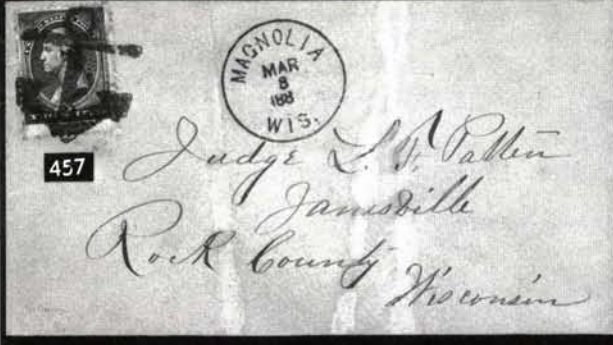 MAGNOLIA
MAR
8
188
WIS.
457
Judge L. F. Patten
Janesville
Rock County
Wisconsin